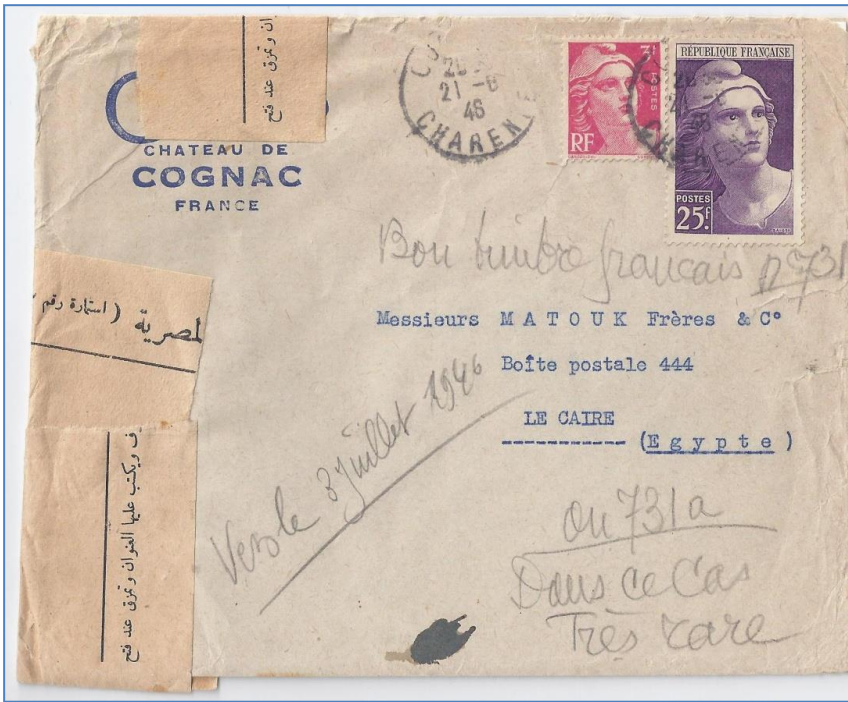 ان و تمزق عند فتح
CHATEAU DE
COGNAC
FRANCE
21 -8
46
CHARENTE
3F
POSTES
RF
RÉPUBLIQUE FRANÇAISE
POSTES
25F
Bon timbre français n° 731
Messieurs M A T O U K Frères & C°
Boîte postale 444
LE CAIRE
----------- (Egypte)
لمصرية ( استمارة رقم
ويكتب عليها العنوان و تمزق عند فتح
Vers le 3 juillet 1946
ou 731a
Dans ce Cas
Très rare